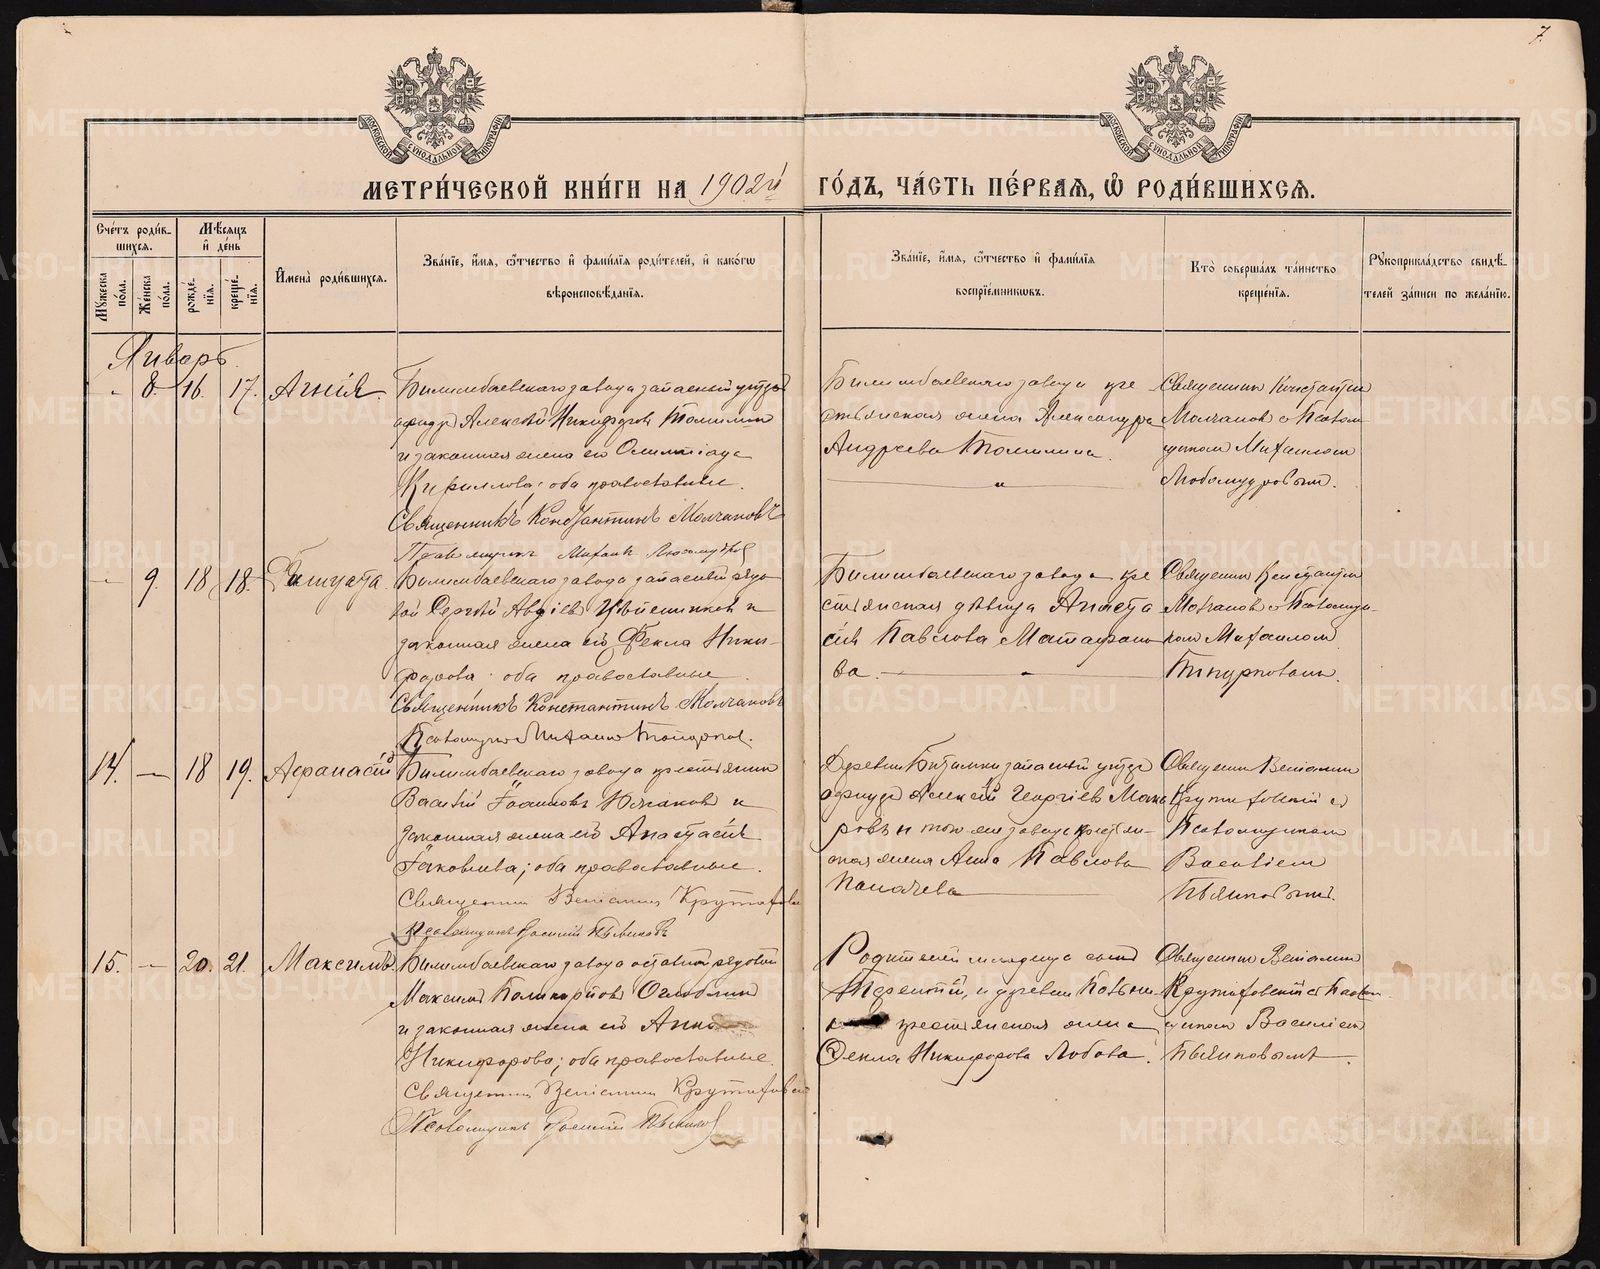 7.
МОСКОВСКОЙ СѴНОДАЛЬНОЙ ТИПОГРАФІИ
МОСКОВСКОЙ СѴНОДАЛЬНОЙ ТИПОГРАФІИ
МЕТРИ́ЧЕСКОЙ КНИ́ГИ НА 1902й ГО́ДЪ, ЧА́СТЬ ПЕ́РВАѦ, Ѡ҆ РОДИ́ВШИХСѦ.
Сче́тъ роди́в-
шихсѧ.
Мꙋ́жеска по́ла.
Же́нска по́ла.
Мѣ́сѧцъ
и҆ де́нь
рожде́-нїѧ.
креще́-нїѧ.
И҆мена̀ роди́вшихсѧ.
Зва́нїе, и҆́мѧ, ѻ҆́тчество и҆ фами́лїѧ роди́телей, и҆ како́гѡ
вѣроисповѣ́данїѧ.
Зва́нїе, и҆́мѧ, ѻ҆́тчество и҆ фами́лїѧ
воспрїе́мникѡвъ.
Кто̀ соверша́лъ та́инство
креще́нїѧ.
Рꙋкоприкла́дство свидѣ́-
телей за́писи по жела́нїю.
Январь.
8. 16. 17. Агнія.
Билимбаевскаго завода запасный унтеръ
офицеръ Алексѣй Никифоровъ Томилинъ
и законная жена его Олимпіада
Кириллова; оба православные.
Священникъ Константинъ Молчановъ
Псаломщикъ Михаилъ Любомудровъ
Билимбаевскаго завода кре
стьянская жена Александра
Андреева Томилина.
Священникъ Константинъ
Молчановъ съ Псалом
щикомъ Михаиломъ
Любомудровымъ.
9. 18 18.
Билимбаевскаго завода запасный рядо
вой Сергѣй Авдіевъ
законная жена его Фекла Ники-
форова; оба православные.
Священникъ Константинъ Молчановъ
Псаломщикъ Михаилъ
Билимбаевскаго завода кре
стьянская дѣвица Анаста
сія Павлова Матафоно
ва.
Священникъ Константинъ
Молчановъ съ Псаломщи-
комъ Михаиломъ
14. — 18 19. Аѳанасій
Билимбаевскаго завода крестьянинъ
Василій Іоанновъ Южаковъ и
законная жена его Анастасія
Іаковлева; оба православные.
Священникъ Веніаминъ Крутиховскій
Псаломщикъ Василій Пьянковъ
Деревни Битимки запасный унтеръ
офицеръ Алексѣй Георгіевъ Мака
ровъ и того же завода крестьян-
ская жена Анна Павлова
Священникъ Веніаминъ
Крутиховскій съ
Псаломщикомъ
Василіемъ
Пьянковымъ.
15. — 20. 21. Максимъ.
Билимбаевскаго завода отставной рядовой
Максимъ Поликарповъ Оглоблинъ
и законная жена его Анна
Никифорова; оба православные.
Священникъ Веніаминъ Крутиховскій
Псаломщикъ Василій Пьянковъ
Родителей младенца сынъ
Терентій, и деревни
крестьянская жена
Фекла Никифорова Лобова.
Священникъ Веніаминъ
Крутиховскій съ Псалом
щикомъ Василіемъ
Пьянковымъ.
METRIKI.GASO-URAL.RU